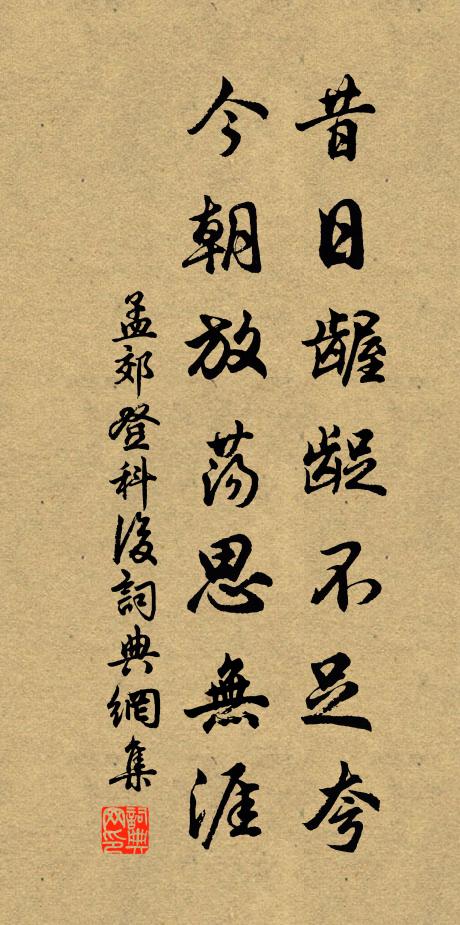 昔日齷齪不足夸
今朝放蕩思無涯
孟郊登科後詞典網集
詞典网印